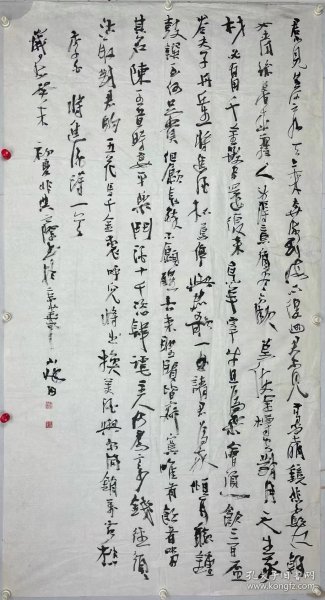 君不見黄河之水天上來奔流到海不復迴君不見高堂明鏡悲白髮朝
如青絲暮成雪人生得意須盡歡莫使金樽空對月天生我
材必有用千金散盡還復來烹羊宰牛且為樂會須一飲三百杯
岑夫子丹丘生將進酒杯莫停與君歌一曲請君為我傾耳聽鐘
鼓饌玉何足貴但願長醉不願醒古來聖賢皆寂寞唯有飲者留
其名陳王昔時宴平樂斗酒十千恣歡謔主人何為言少錢徑須
沽取對君酌五花馬千金裘呼兒將出換美酒與爾同銷萬古愁
李白將進酒詩一首
歲次癸未初夏
孔夫子旧书网